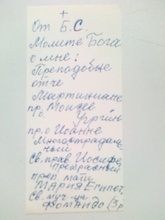 От Б.С.
Молите Бога
о мне:
Преподобне
отче
Мартиниане
пр. Моисее
Угрине
пр. Иоанне
Многострадаль
ный
св. прав. Иосифе
Прекрасный
преп. мати
Мария Египет.
Св. муч-ца
Фомаидо.